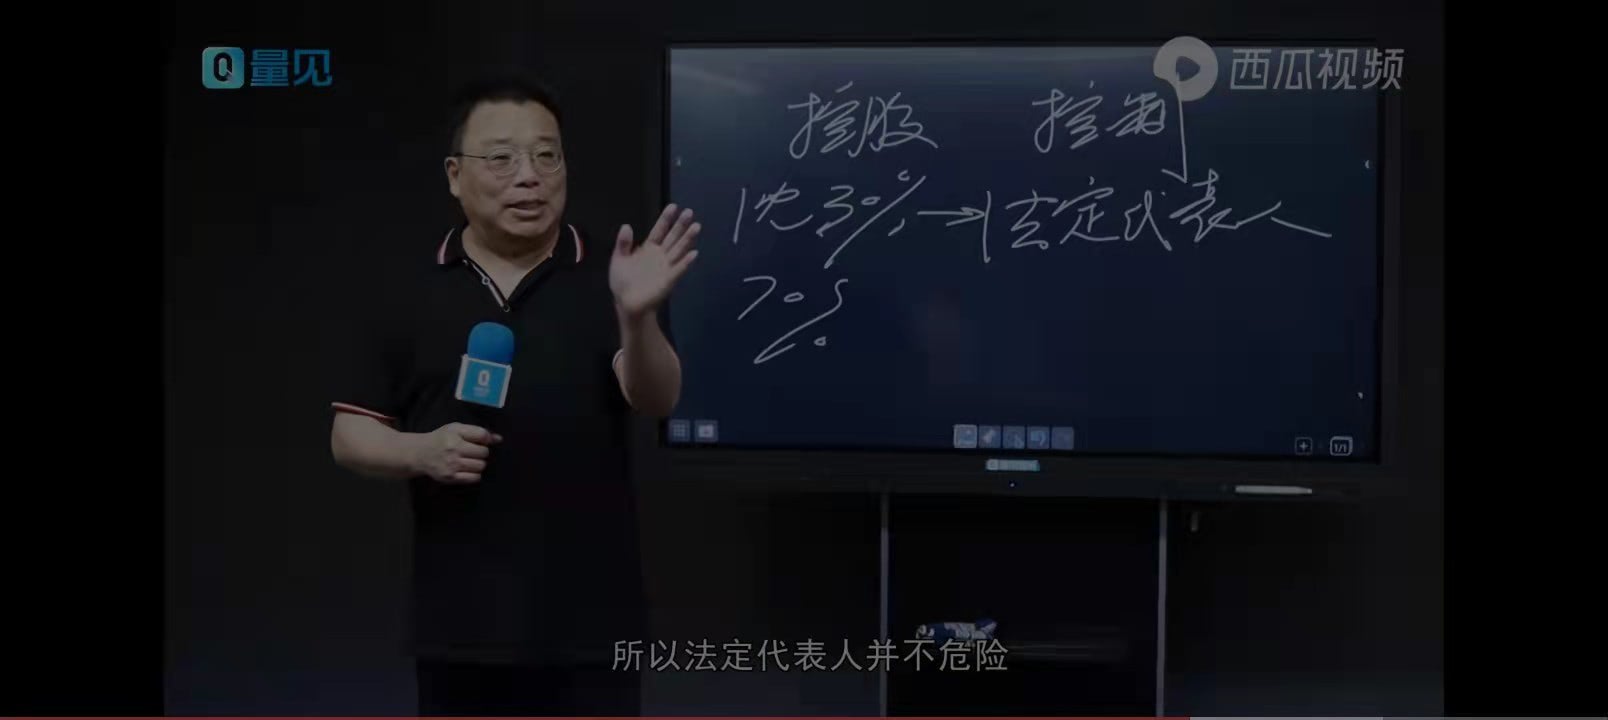 量见
西瓜视频
控股 控制
沈30% → 法定代表人
70%
1/1
所以法定代表人并不危险